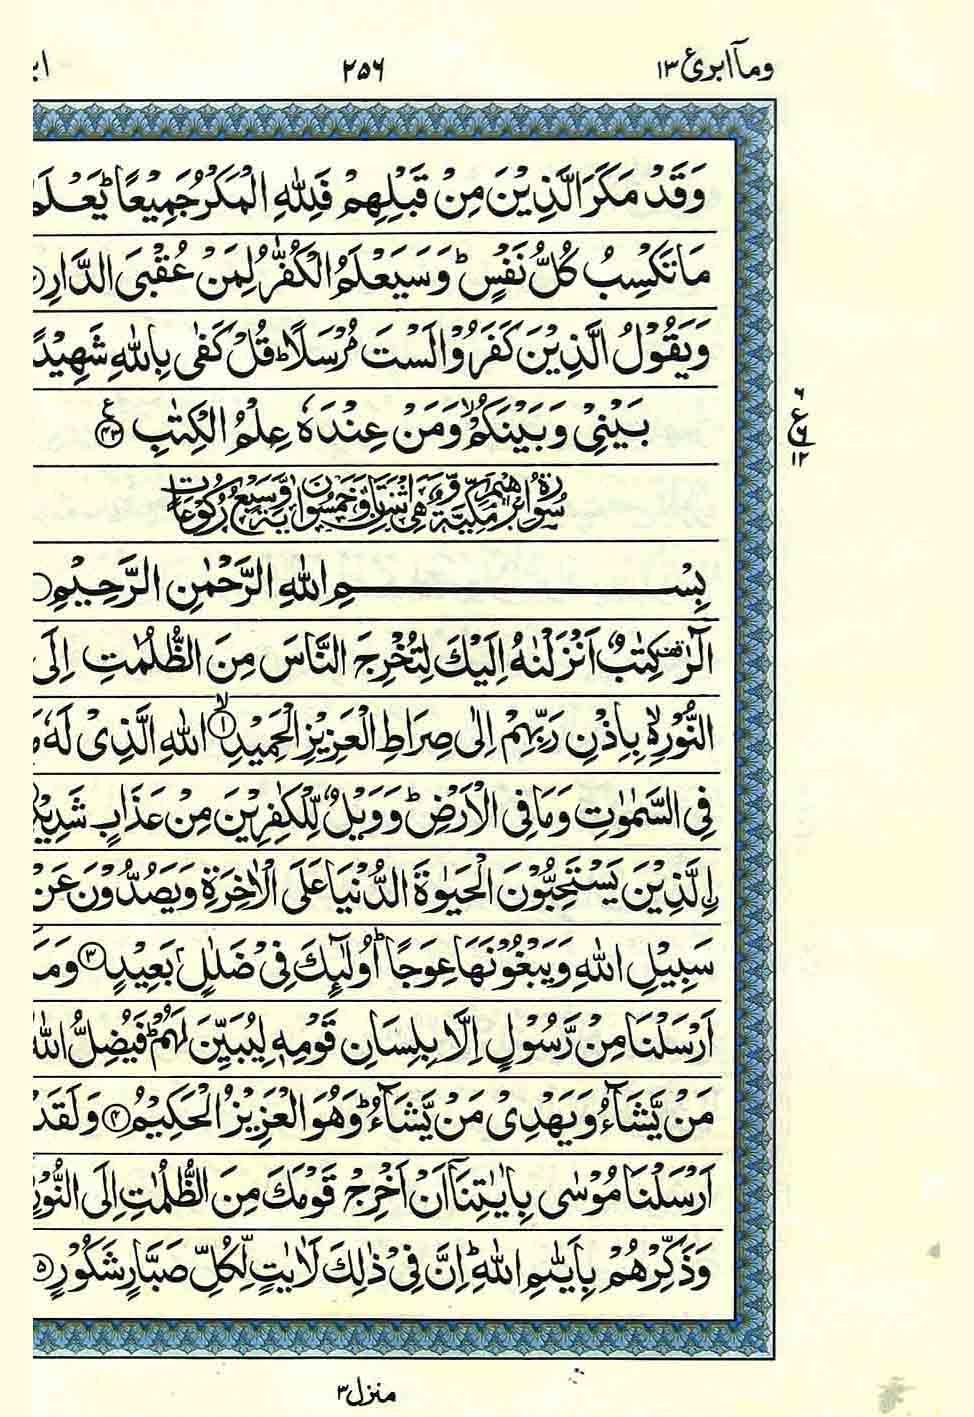 وماۤ ابرئ ١٣
٢٥٦
وَقَدْ مَكَرَ الَّذِيْنَ مِنْ قَبْلِهِمْ فَلِلّٰهِ الْمَكْرُ جَمِيْعًا ؕ يَعْلَمُ
مَا تَكْسِبُ كُلُّ نَفْسٍ ؕ وَسَيَعْلَمُ الْكُفّٰرُ لِمَنْ عُقْبَى الدَّارِ
وَيَقُوْلُ الَّذِيْنَ كَفَرُوْا لَسْتَ مُرْسَلًا ؕ قُلْ كَفٰى بِاللّٰهِ شَهِيْدًا
بَيْنِيْ وَبَيْنَكُمْ ۙ وَمَنْ عِنْدَهٗ عِلْمُ الْكِتٰبِ ﴿٤٣﴾ ع
٦ ع ٦ ١٢
سُوْرَةُ اِبْرٰهِيْمَ مَكِّيَّةٌ وَّهِيَ اثْنَتَانِ وَخَمْسُوْنَ اٰيَةً وَّسَبْعُ رُكُوْعَاتٍ
بِسْمِ اللّٰهِ الرَّحْمٰنِ الرَّحِيْمِ
الٓرٰ ۟ كِتٰبٌ اَنْزَلْنٰهُ اِلَيْكَ لِتُخْرِجَ النَّاسَ مِنَ الظُّلُمٰتِ اِلَى
النُّوْرِ ۙ بِاِذْنِ رَبِّهِمْ اِلٰى صِرَاطِ الْعَزِيْزِ الْحَمِيْدِ ﴿١﴾ۙ اللّٰهِ الَّذِيْ لَهٗ
فِي السَّمٰوٰتِ وَمَا فِي الْاَرْضِ ؕ وَوَيْلٌ لِّلْكٰفِرِيْنَ مِنْ عَذَابٍ شَدِيْدِ
اِ۟لَّذِيْنَ يَسْتَحِبُّوْنَ الْحَيٰوةَ الدُّنْيَا عَلَى الْاٰخِرَةِ وَيَصُدُّوْنَ عَنْ
سَبِيْلِ اللّٰهِ وَيَبْغُوْنَهَا عِوَجًا ؕ اُولٰٓئِكَ فِيْ ضَلٰلٍۭ بَعِيْدٍ ﴿٣﴾ وَمَاۤ
اَرْسَلْنَا مِنْ رَّسُوْلٍ اِلَّا بِلِسَانِ قَوْمِهٖ لِيُبَيِّنَ لَهُمْ ؕ فَيُضِلُّ اللّٰهُ
مَنْ يَّشَآءُ وَيَهْدِيْ مَنْ يَّشَآءُ ؕ وَهُوَ الْعَزِيْزُ الْحَكِيْمُ ﴿٤﴾ وَلَقَدْ
اَرْسَلْنَا مُوْسٰى بِاٰيٰتِنَاۤ اَنْ اَخْرِجْ قَوْمَكَ مِنَ الظُّلُمٰتِ اِلَى النُّوْرِ
وَذَكِّرْهُمْ بِاَيّٰىمِ اللّٰهِ ؕ اِنَّ فِيْ ذٰلِكَ لَاٰيٰتٍ لِّكُلِّ صَبَّارٍ شَكُوْرٍ ﴿٥﴾
منزل ٣